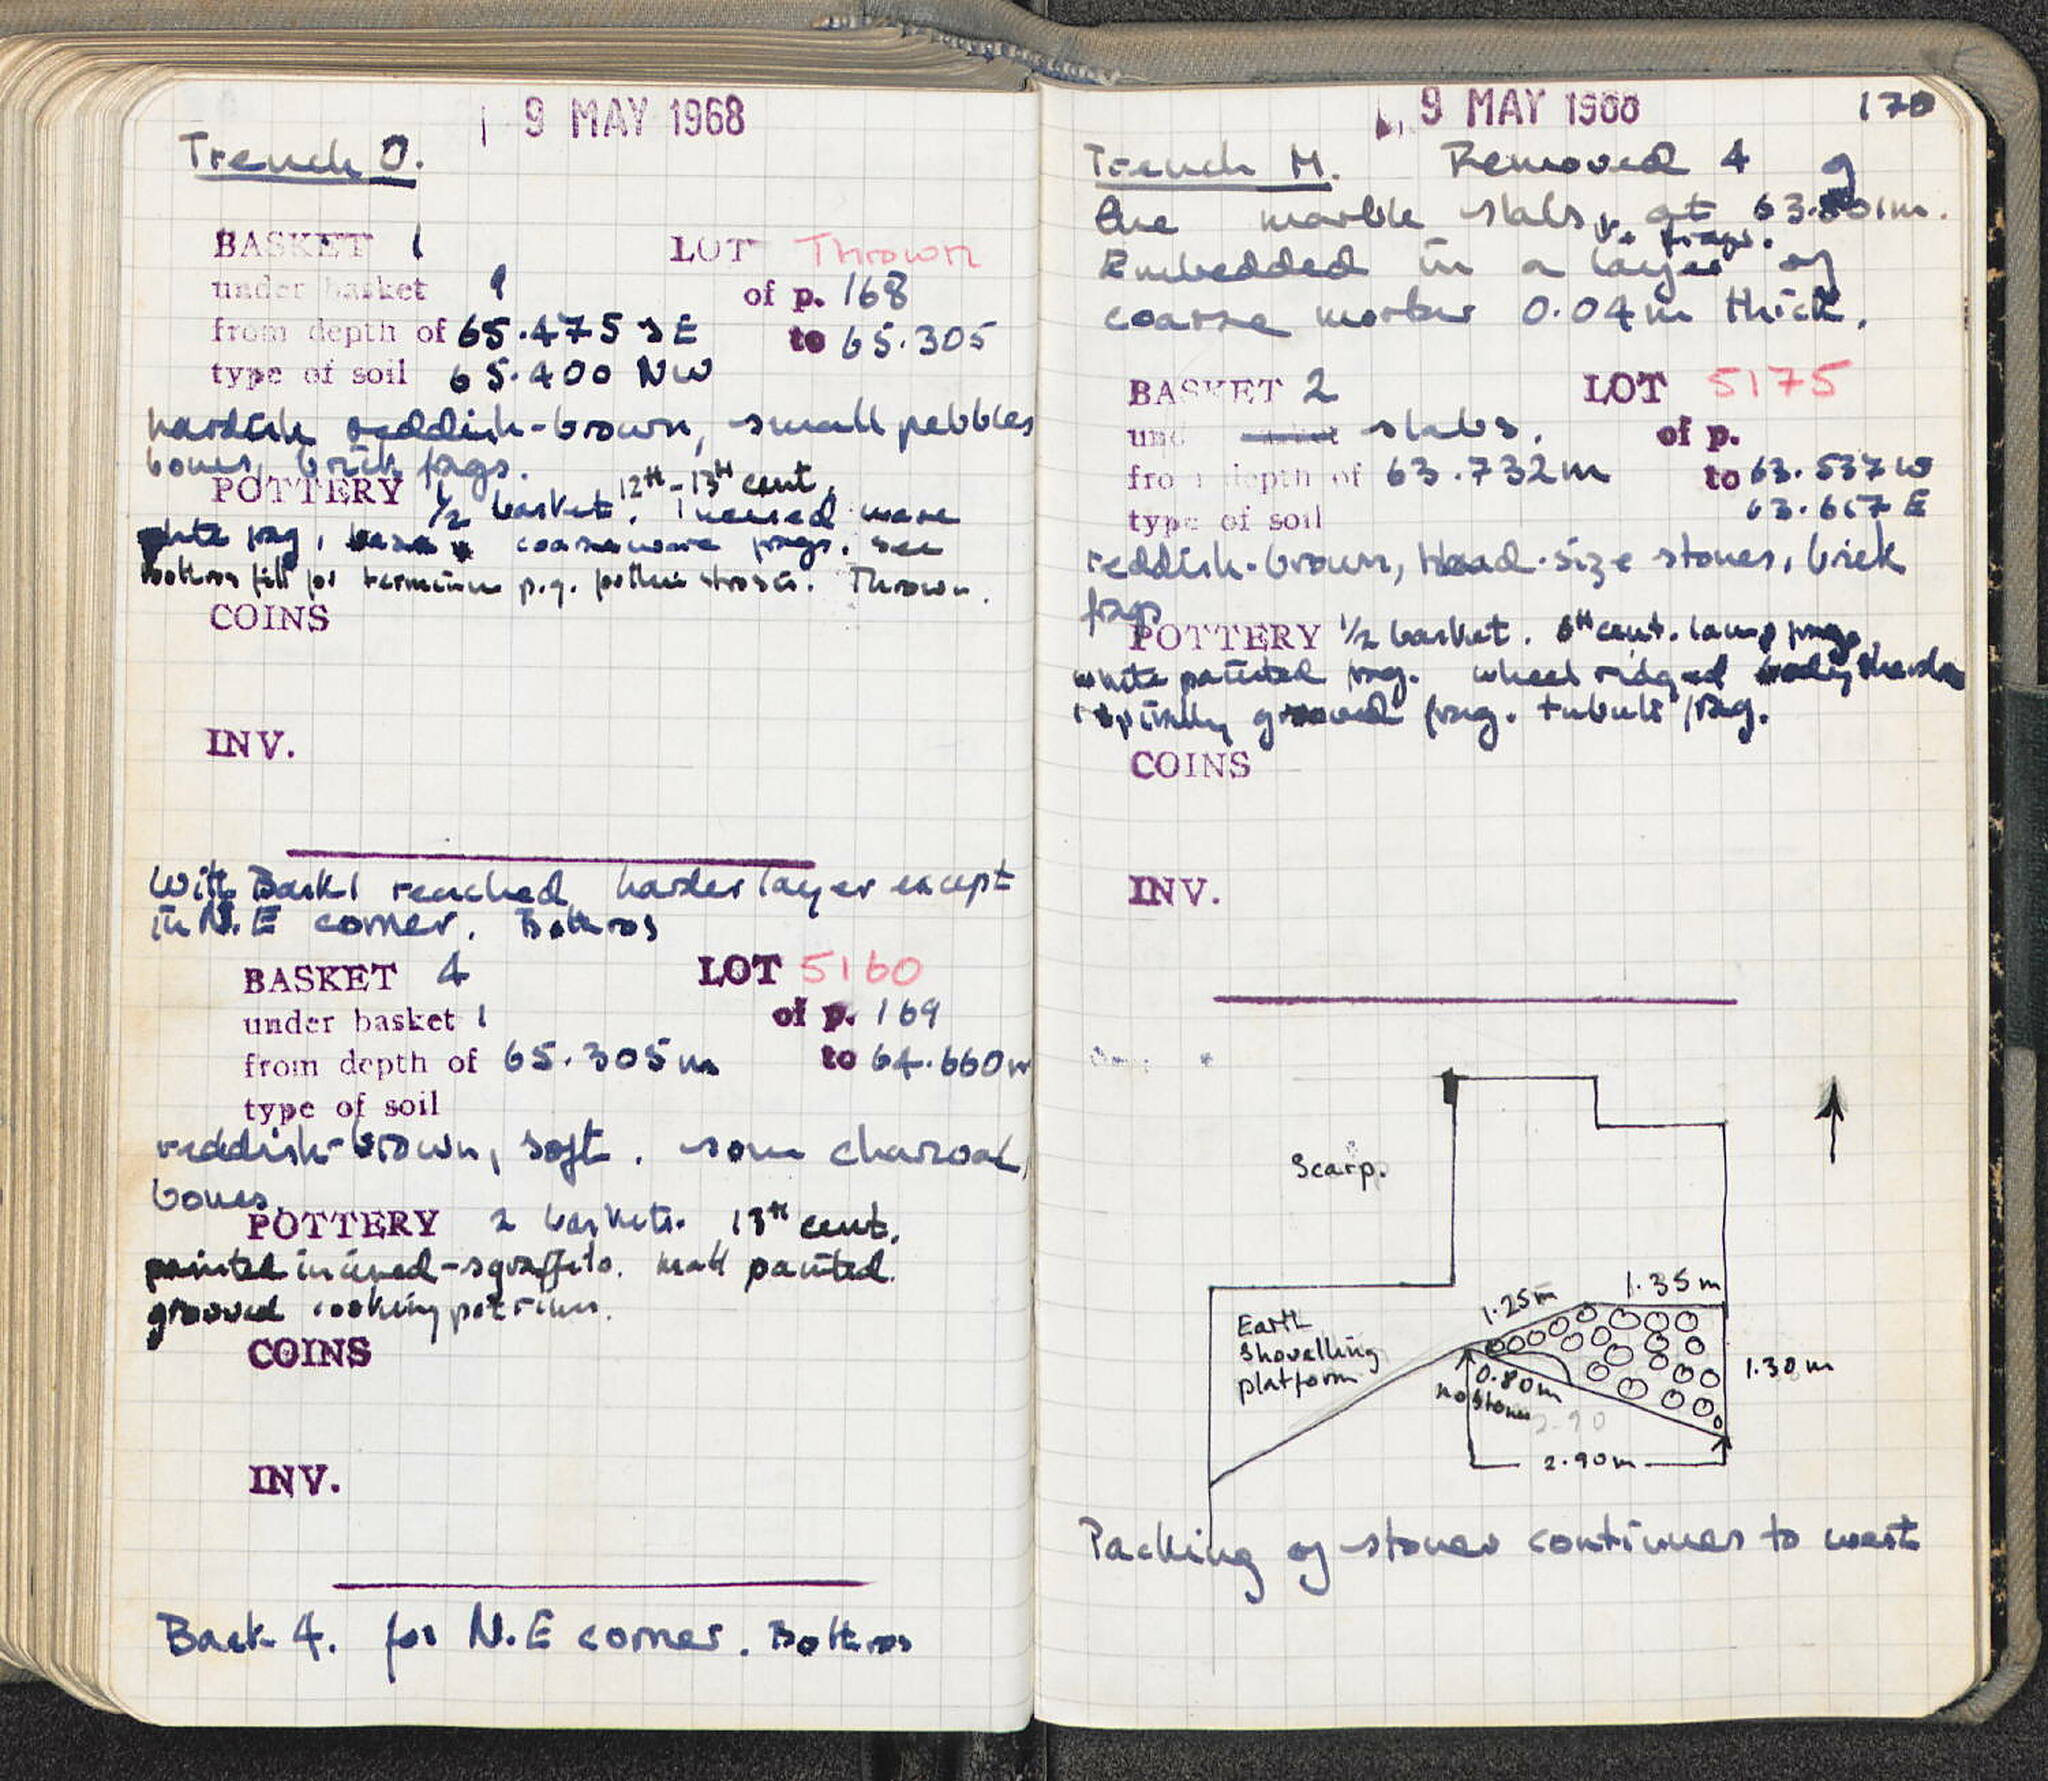 9 MAY 1968
Trench O.
BASKET 1 LOT Thrown
under basket 9 of p. 168
from depth of 65.475 SE to 65.305
type of soil 65.400 NW
hardish reddish-brown, small pebbles
bones, brick frags.
POTTERY 1/2 basket. 12th-13th cent.
Incised ware
plate frag, coarseware frags. see
bothros fill for terminus p.q. for the strosis. Thrown.
COINS
INV.
With Bask 1 reached harder layer except
in N.E corner. Bothros
BASKET 4 LOT 5160
under basket 1 of p. 169
from depth of 65.305m to 64.660m
type of soil
reddish-brown, soft. some charcoal,
bones.
POTTERY 2 baskets. 13th cent.
painted incised-sgraffito. matt painted.
grooved cooking pot rims.
COINS
INV.
Bask 4. for N.E corner. Bothros
9 MAY 1968 170
Trench M. Removed 4 of
the marble slabs, + frags. at
Embedded in a layer of
coarse mortar 0.04m thick.
BASKET 2 LOT 5175
slabs. of p.
from depth of 63.732m to 63.537 W
type of soil 63.617 E
reddish-brown, head-size stones, brick
frags
POTTERY 1/2 basket. 6th cent. lamp frags.
white painted frag. wheel ridged body sherds
spirally grooved frag. tubuli frag.
COINS
INV.
Scarp.
1.35m
1.25m
Earth
shovelling
platform
1.30m
0.80m
no stones
2.90
2.90m
Packing of stones continues to west